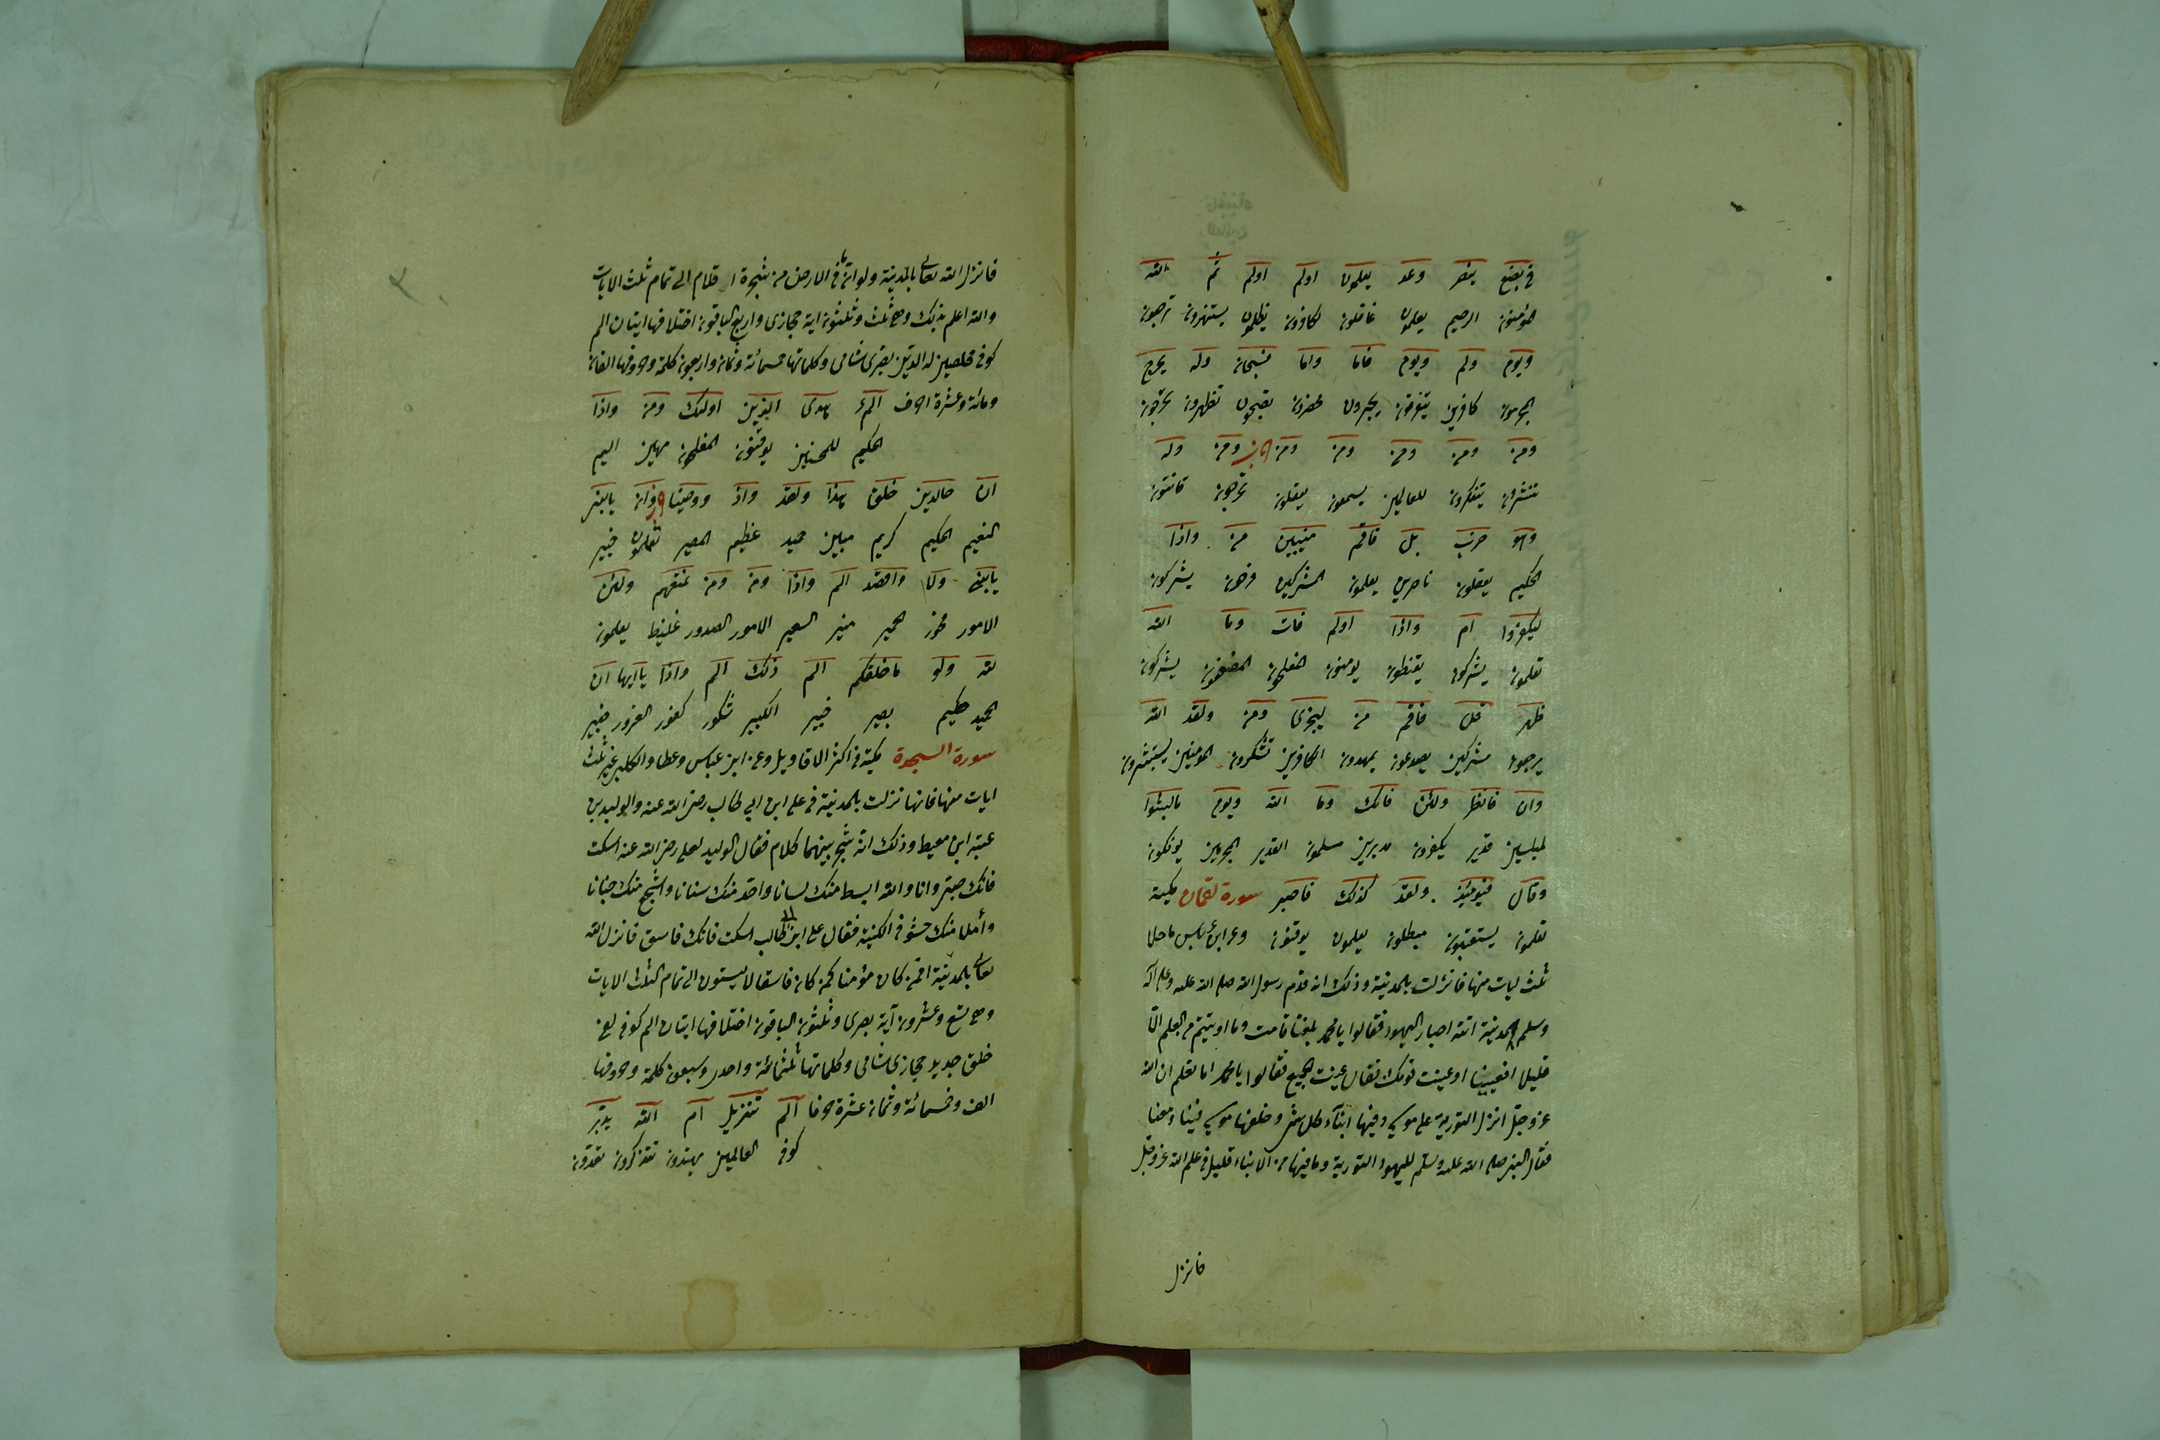 في بضع ينصر وعد يعلمون اولم اولم ثم الله
المؤمنون الرحيم يعلمون غافلون لكافرون يظلمون يستهزؤن ترجعون
ويوم ولم ويوم فاما واما فسبحان وله يخرج
المجرمون كافرين يتفرقون يحبرون محضرون تصبحون تظهرون تخرجون
ومن ومن ومن ومن ومن ومن وله
تنتشرون يتفكرون للعالمين يسمعون يعقلون تخرجون قانتون
وهو ضرب بل فاقم منيبين من واذا
الحكيم يعقلون ناصرين يعلمون المشركين فرحون يشركون
ليكفروا ام واذا اولم فات وما الله
تعلمون يشركون يقنطون يومنون المفلحون المضعفون يشركون
ظهر قل فاقم من ليجزى ومن ولقد الله
يرجعون مشركين يصدعون يمهدون الكافرين تشكرون المومنين يستبشرون
وان فانظر ولئن فانك وما الله ويوم مالبثوا
لمبلسين قدير يكفرون مدبرين مسلمون القدير المجرمين يوفكون
وقال فيومئذ ولقد كذلك فاصبر سورة لقمان مكية
تعلمون يستعتبون مبطلون يعلمون يوقنون وعن ابن عباس ماخلا
ثلث ايات منها فانزلت بالمدينة وذلك انه قدم رسول الله صلى الله عليه وعلى آله
وسلم المدينة اتته احبار اليهود فقالوا يا محمد بلغنا قامت وما اوتيتم من العلم الا
قليلا افعنيتنا او عنيت قومك فقال عنيت الجميع فقالوا يا محمد اما تعلم ان الله
عز وجل انزل التورية على موسى وفيها انباء كل شئ وخلفها موسى فينا ومعنا
فقال النبي صلى الله عليه وسلم لليهود التورية وما فيها من الانباء قليل في علم الله عز وجل
فانزل
فانزل الله تعالى بالمدينة ولو ان ما في الارض من شجرة اقلام الى تمام ثلث الايات
والله اعلم بذلك وهي ثلث وثلثون اية حجازى واربع الباقون اختلافها ايتان الم
كوفي مخلصين له الدين بصرى شامى وكلماتها خمسمائة وثمان واربعون كلمة وحروفها الفان
ومائة وعشرة احرف الم هدى الذين اولئك ومن واذا
الحكيم للمحسنين يوقنون المفلحون مهين اليم
ان خالدين خلق هذا ولقد واذ ووصينا وان يابني
النعيم الحكيم كريم مبين حميد عظيم المصير تعملون خبير
يابني ولا واقصد الم واذا ومن ومن نمتعهم ولئن
الامور فخور الحمير منير السعير الامور الصدور غليظ يعلمون
لله ولو ماخلقكم الم ذلك الم واذا ياايها ان
الحميد حكيم بصير خبير الكبير شكور كفور الغرور خبير
سورة السجدة مكية في اكثر الاقاويل وعن ابن عباس وعطا والكلبي غير ثلث
ايات منها فانها نزلت بالمدينة في على ابن ابي طالب رضى الله عنه والوليد بن
عتبة ابن معيط وذلك انه شجر بينهما كلام فقال الوليد لعلى رضى الله عنه اسكت
فانك صبي وانا والله ابسط منك لسانا واحد منك سنانا واشجع منك جنانا
وأملا منك حشوا في الكتيبة فقال على ابن ابي طالب اسكت فانك فاسق فانزل الله
تعالى بالمدينة افمن كان مؤمنا كمن كان فاسقا لا يستون الى تمام الثلث الايات
وهي تسع وعشرون آية بصرى وثلثون الباقون اختلافها ايتان الم كوفي لفي
خلق جديد حجازى شامى وكلماتها ثلثمائة واحدى وسبعون كلمة وحروفها
الف وخمسمائة وثمان عشرة حرفا الم تنزيل ام الله يدبر
كوفي العالمين يهتدون تتذكرون تعدون